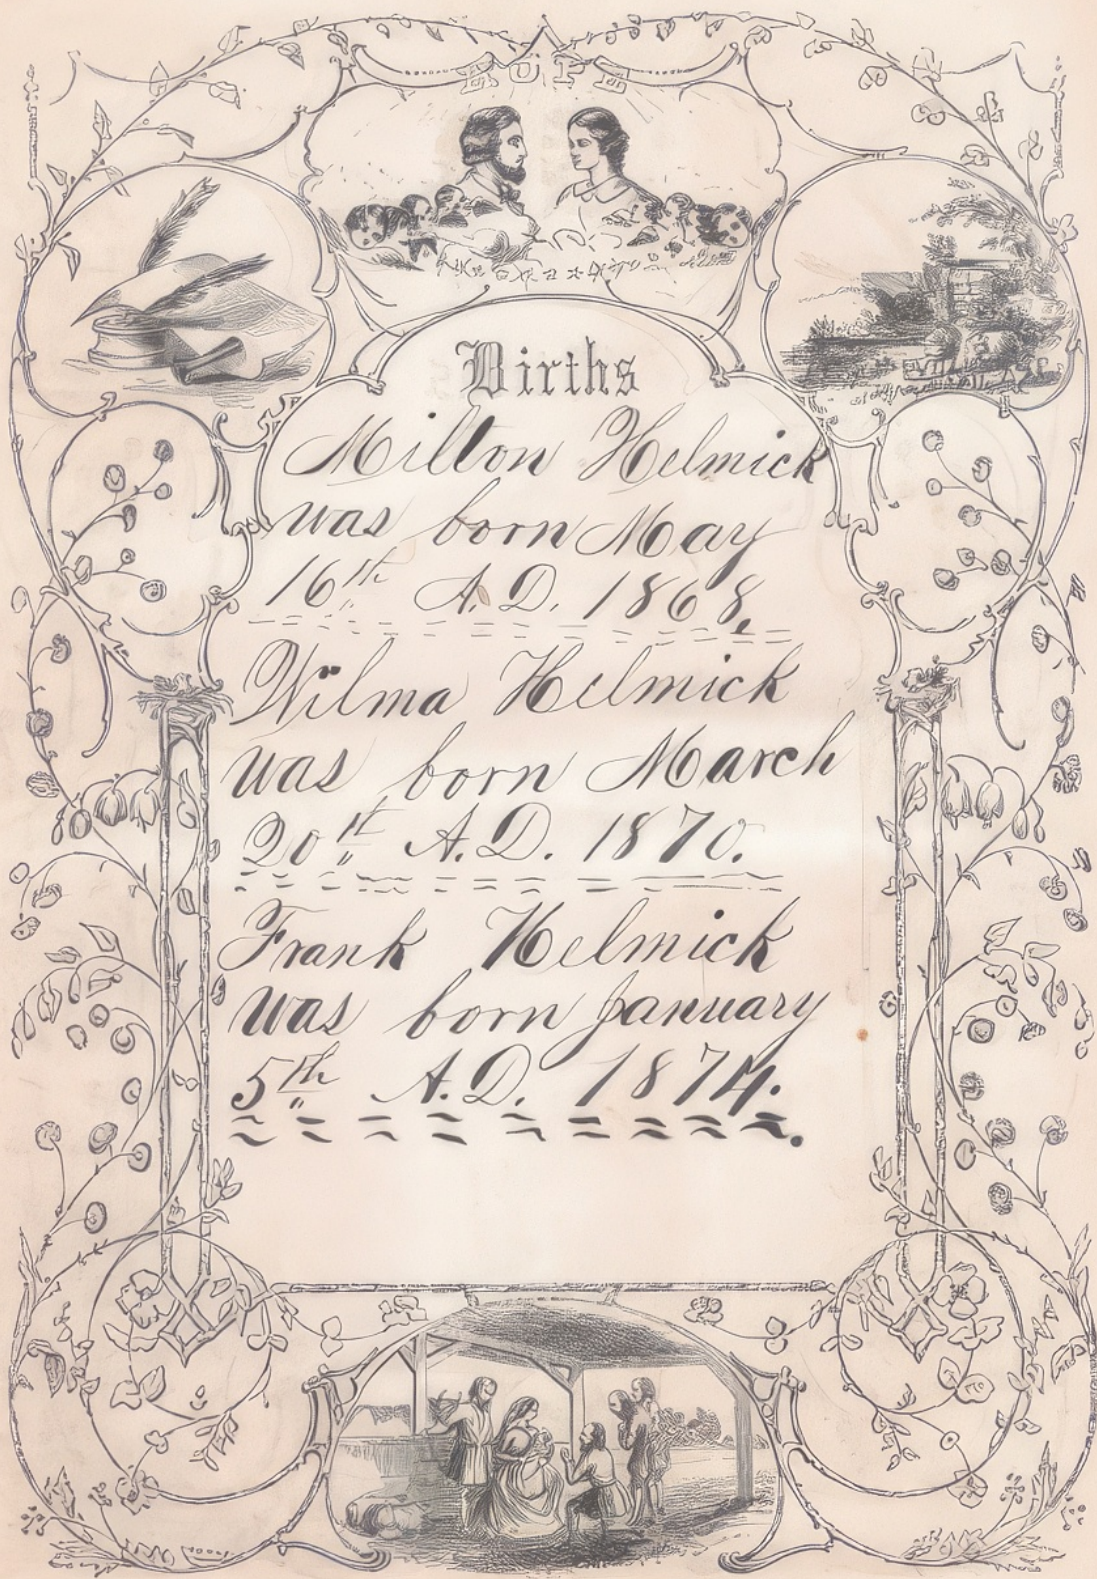 HOPE
Births
Milton Helmick
was born May
16th A.D. 1868.
Wilma Helmick
was born March
20th A.D. 1870.
Frank Helmick
was born January
5th A.D. 1874.